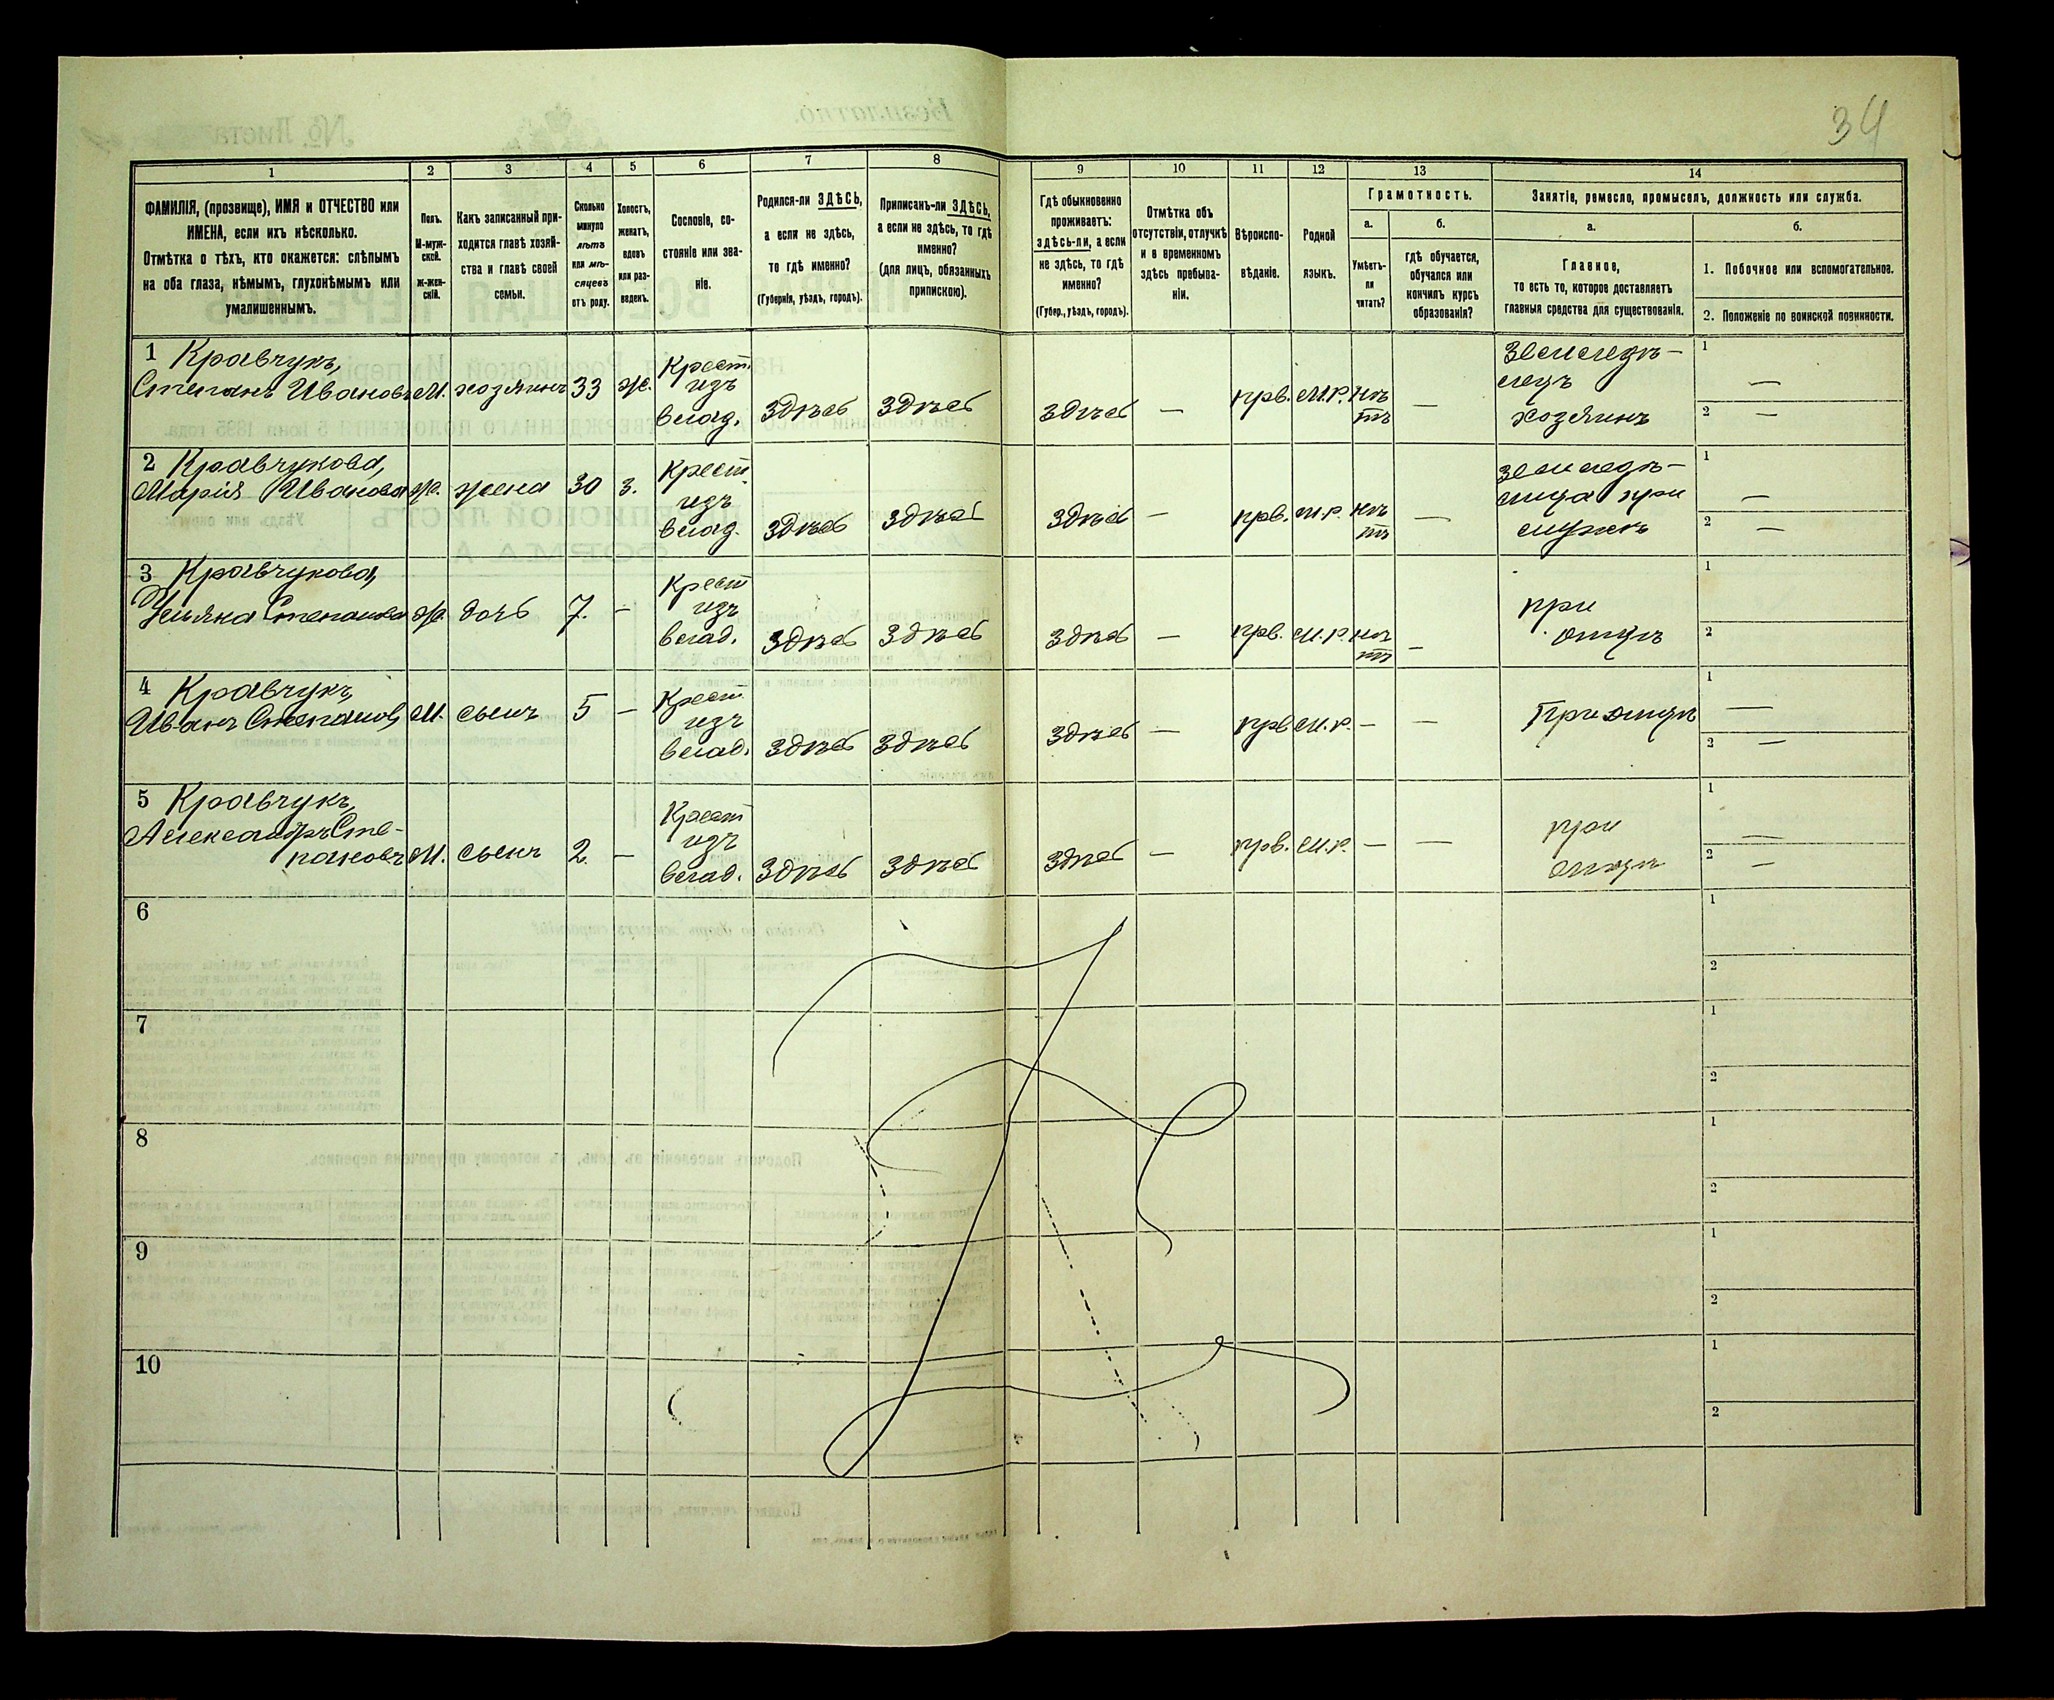 34
1
2
3
4
5
6
7
8
9
10
11
12
13
14
ФАМИЛІЯ, (прозвище), ИМЯ и ОТЧЕСТВО или
ИМЕНА, если ихъ нѣсколько.
Отмѣтка о тѣхъ, кто окажется: слѣпымъ
на оба глаза, нѣмымъ, глухонѣмымъ или
умалишеннымъ.
Полъ.
М-муж-
ской.
Ж-жен-
скій.
Какъ записанный при-
ходится главѣ хозяй-
ства и главѣ своей
семьи.
Сколько
минуло
лѣтъ
или мѣ-
сяцевъ
отъ роду.
Холостъ,
женатъ,
вдовъ
или раз-
веденъ.
Сословіе, со-
стояніе или зва-
ніе.
Родился-ли ЗДѢСЬ,
а если не здѣсь,
то гдѣ именно?
(Губернія, уѣздъ, городъ).
Приписанъ-ли ЗДѢСЬ,
а если не здѣсь, то гдѣ
именно?
(для лицъ, обязанныхъ
припискою).
Гдѣ обыкновенно
проживаетъ:
здѣсь-ли, а если
не здѣсь, то гдѣ
именно?
(Губер., уѣздъ, городъ).
Отмѣтка объ
отсутствіи, отлучкѣ
и о временномъ
здѣсь пребыва-
ніи.
Вѣроиспо-
вѣданіе.
Родной
языкъ.
Грамотность.
а.
Умѣетъ-
ли
читать?
б.
гдѣ обучается,
обучался или
кончилъ курсъ
образованія?
Занятіе, ремесло, промыселъ, должность или служба.
а.
Главное,
то есть то, которое доставляетъ
главныя средства для существованія.
б.
1. Побочное или вспомогательное.
2. Положеніе по воинской повинности.
1 Кравчукъ,
Степанъ Ивановъ М. хозяинъ 33 ж. Крест. изъ влад. здѣсь здѣсь здѣсь — прв. м.р. нѣтъ — земледѣлецъ хозяинъ 1 — 2 —
2 Кравчукова,
Марія Иванова ж. жена 30 з. Крест. изъ влад. здѣсь здѣсь здѣсь — прв. м.р. нѣтъ — 1 — 2 —
3 Кравчукова,
Ульяна Степанова ж. дочь 7. — Крест изъ влад. здѣсь здѣсь здѣсь — прв. м.р. нѣтъ — при отцѣ 1 2
4 Кравчукъ,
Иванъ Степановъ М. сынъ 5 — Крест изъ влад. здѣсь здѣсь здѣсь — прв м.р. — — При отцѣ 1 — 2 —
5 Кравчукъ,
Александръ Сте-
пановъ М. сынъ 2. — Крест изъ влад. здѣсь здѣсь здѣсь — прв. м.р. — — при отцѣ 1 — 2 —
6 1 2
7 1 2
8 1 2
9 1 2
10 1 2